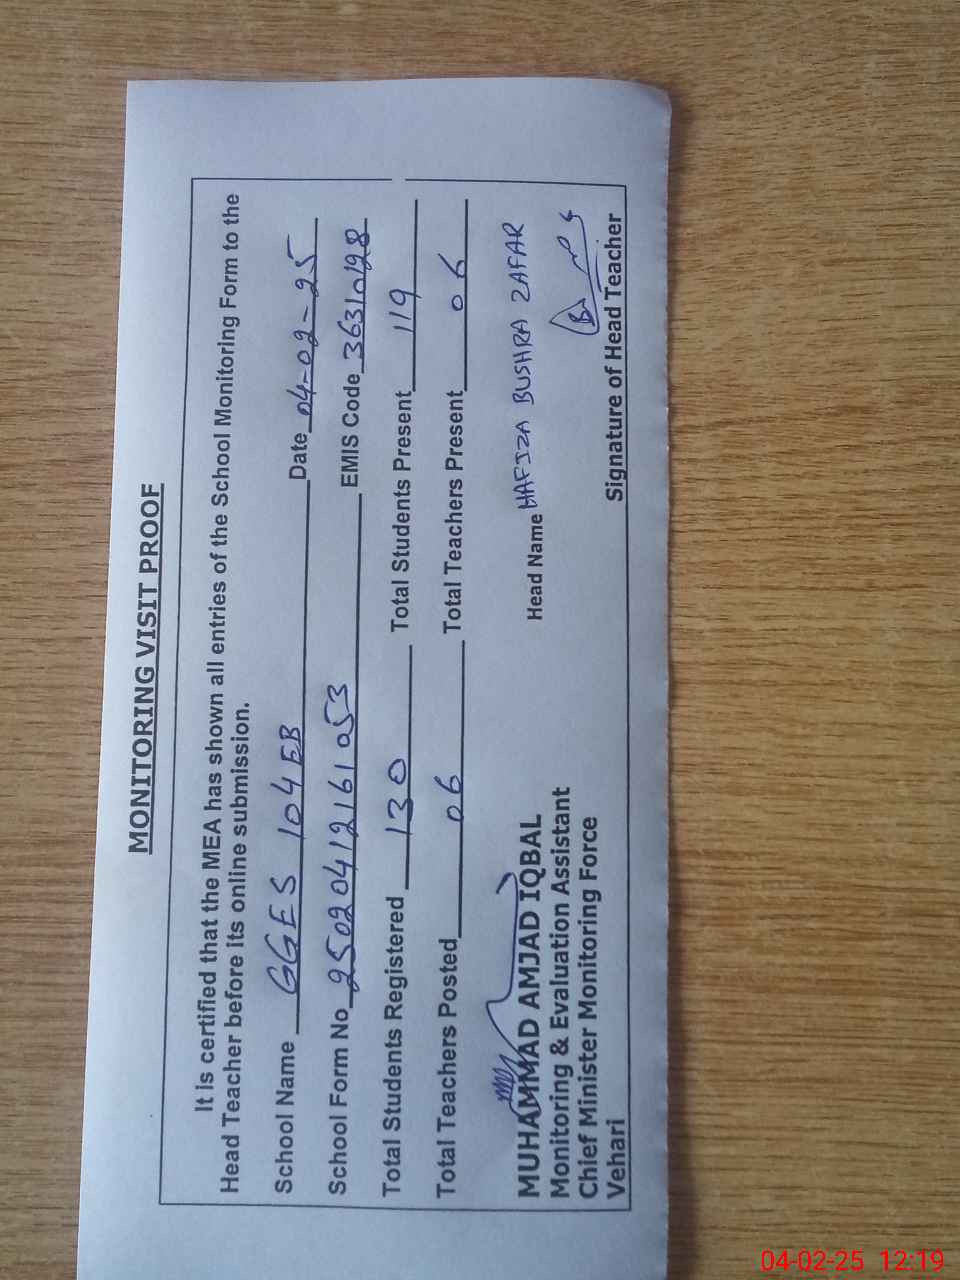 MONITORING VISIT PROOF
It is certified that the MEA has shown all entries of the School Monitoring Form to the
Head Teacher before its online submission.
School Name GGES 104 EB Date 04-02-25
School Form No 25020412161053 EMIS Code 36310128
Total Students Registered 130 Total Students Present 119
Total Teachers Posted 06 Total Teachers Present 06
Head Name HAFIZA BUSHRA ZAFAR
MUHAMMAD AMJAD IQBAL
Monitoring & Evaluation Assistant
Chief Minister Monitoring Force
Vehari
Signature of Head Teacher
04-02-25 12:19